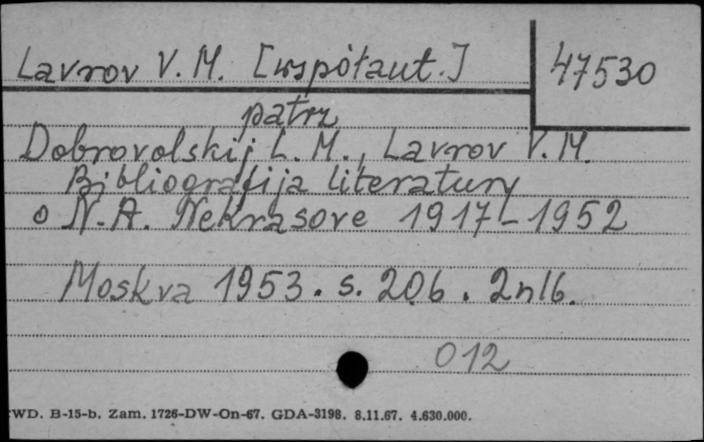 Lavrov V. M. [współaut.]
47530
patrz
Dobrovolskij L. M., Lavrov V. M.
Bibliografija literatury
o N. A. Nekrasove 1917-1952
Moskva 1953. s. 206. 2nlb.
012
WD. B-15-b. Zam. 1726-DW-On-67. GDA-3198. 8.11.67. 4.630.000.